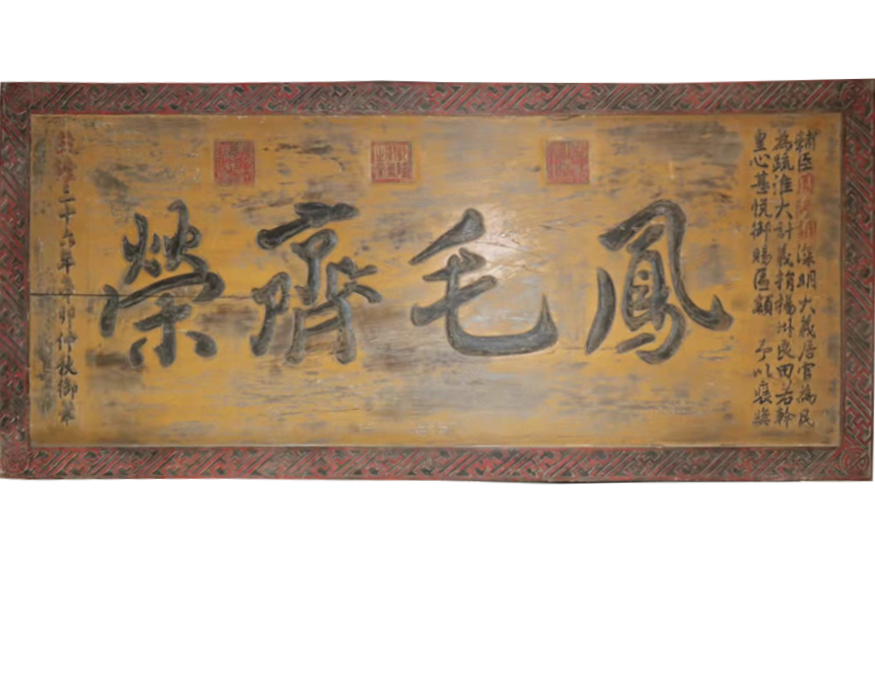 輔臣深明大義居官為民
為疏淮大計義捐揚州良田若幹
皇心甚悅御賜匾額予以褒獎
鳳毛齊榮
二十六年卯仲秋御筆